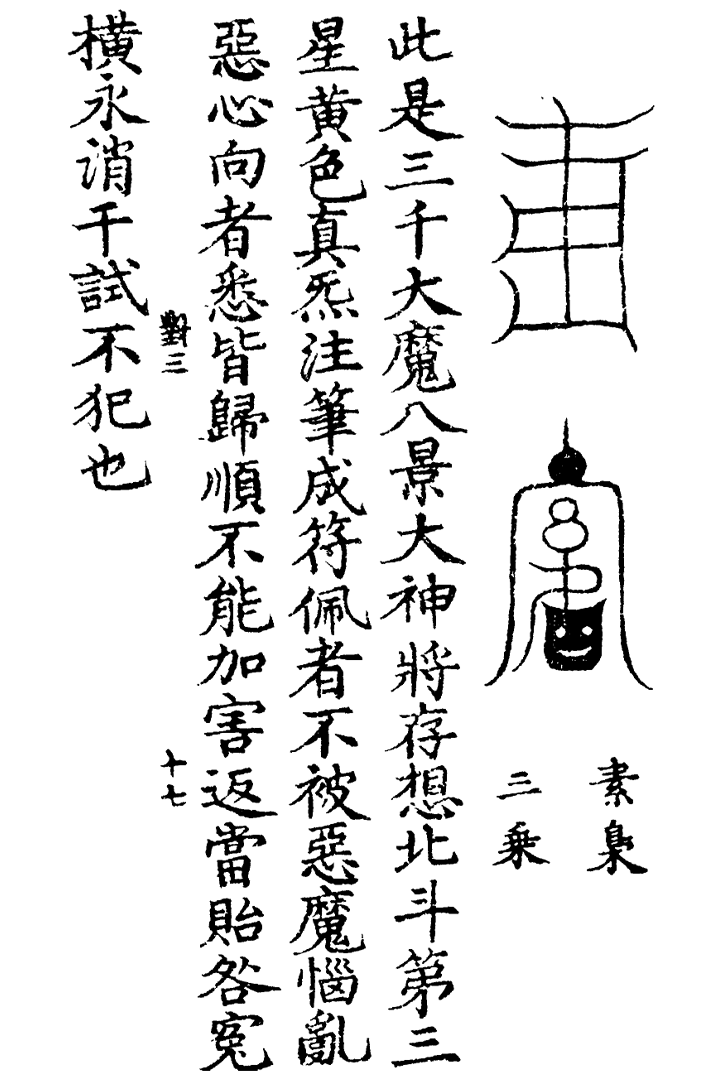 素梟
三乘
此是三千大魔八景大神將存想北斗第三
星黃色真炁注筆成符佩者不被惡魔惱亂
惡心向者悉皆歸順不能加害返當貽咎冤
對三
十七
橫永消干試不犯也